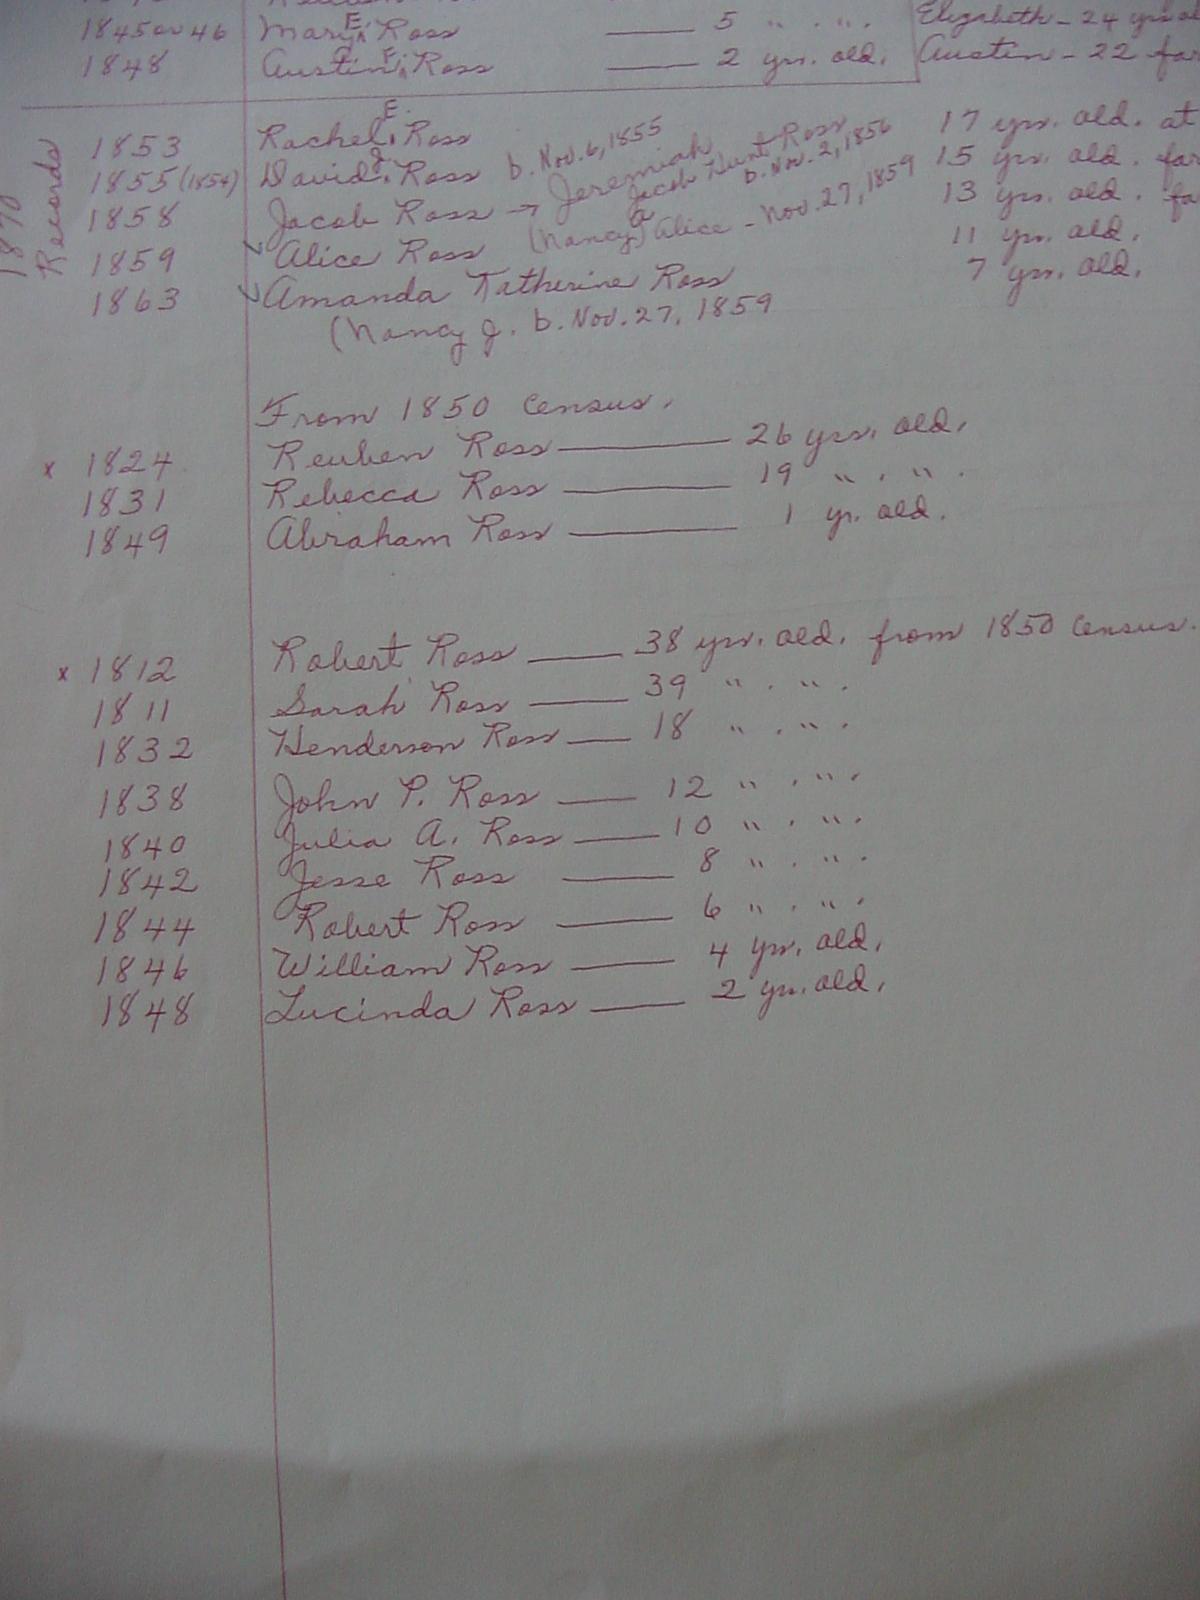 1845 or 46 Mary E. Ross —— 5 " . ". Elizabeth - 24 yrs
1848 Austin F. Ross —— 2 yrs. old. Austin - 22
1870 Records
1853 Rachel E. Ross 17 yrs. old. at
1855 (1854) David J. Ross b. Nov. 6, 1855 15 yrs. old.
1858 Jacob Ross → Jeremiah Jacob Hunt Ross b. Nov. 2, 1856 13 yrs. old.
1859 ✓ Alice Ross (Nancy) Alice - Nov. 27, 1859 11 yrs. old.
1863 ✓ Amanda Katherine Ross 7 yrs. old.
(Nancy J. b. Nov. 27, 1859
From 1850 Census.
x 1824 Reuben Ross —— 26 yrs. old.
1831 Rebecca Ross —— 19 " . " .
1849 Abraham Ross —— 1 yr. old.
x 1812 Robert Ross —— 38 yrs. old. from 1850 Census.
1811 Sarah Ross —— 39 " . " .
1832 Henderson Ross —— 18 " . " .
1838 John P. Ross —— 12 " . " .
1840 Julia A. Ross —— 10 " . " .
1842 Jesse Ross —— 8 " . " .
1844 Robert Ross —— 6 " . " .
1846 William Ross —— 4 yrs. old.
1848 Lucinda Ross —— 2 yrs. old.